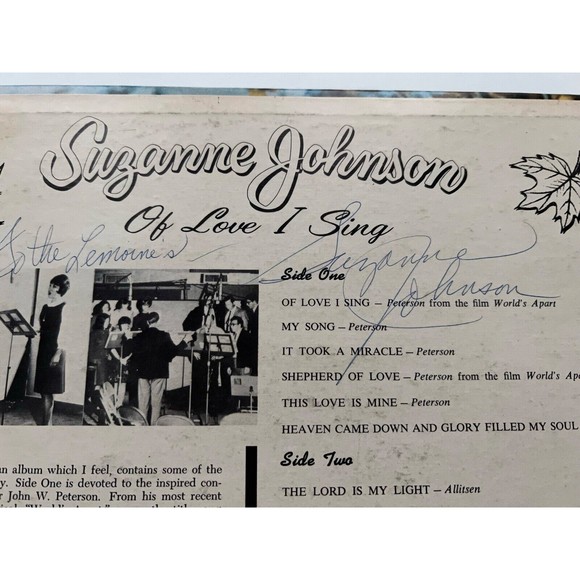 Suzanne Johnson
Of Love I Sing
To the Lemoine's — Suzanne Johnson
Side One
OF LOVE I SING — Peterson from the film World's Apart
MY SONG — Peterson
IT TOOK A MIRACLE — Peterson
SHEPHERD OF LOVE — Peterson from the film World's Apart
THIS LOVE IS MINE — Peterson
HEAVEN CAME DOWN AND GLORY FILLED MY SOUL
Side Two
THE LORD IS MY LIGHT — Allitsen
an album which I feel, contains some of the
y. Side One is devoted to the inspired con-
r John W. Peterson. From his most recent